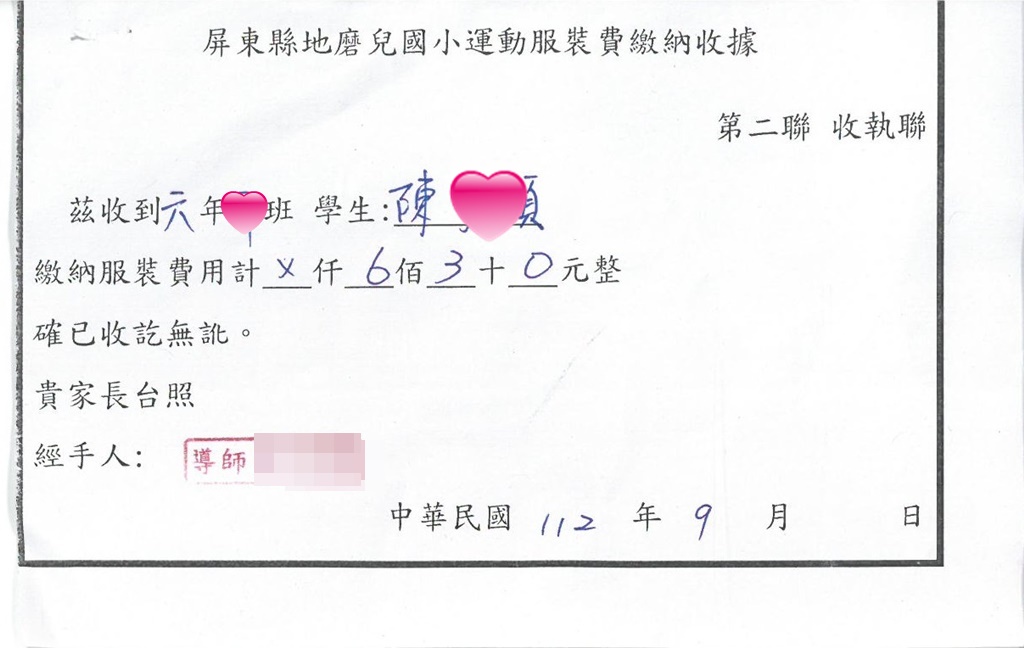 屏東縣地磨兒國小運動服裝費繳納收據
第二聯 收執聯
茲收到六年班 學生:陳
繳納服裝費用計 x 仟 6 佰 3 十 0 元整
確已收訖無訛。
貴家長台照
經手人: 導師
中華民國 112 年 9 月 日